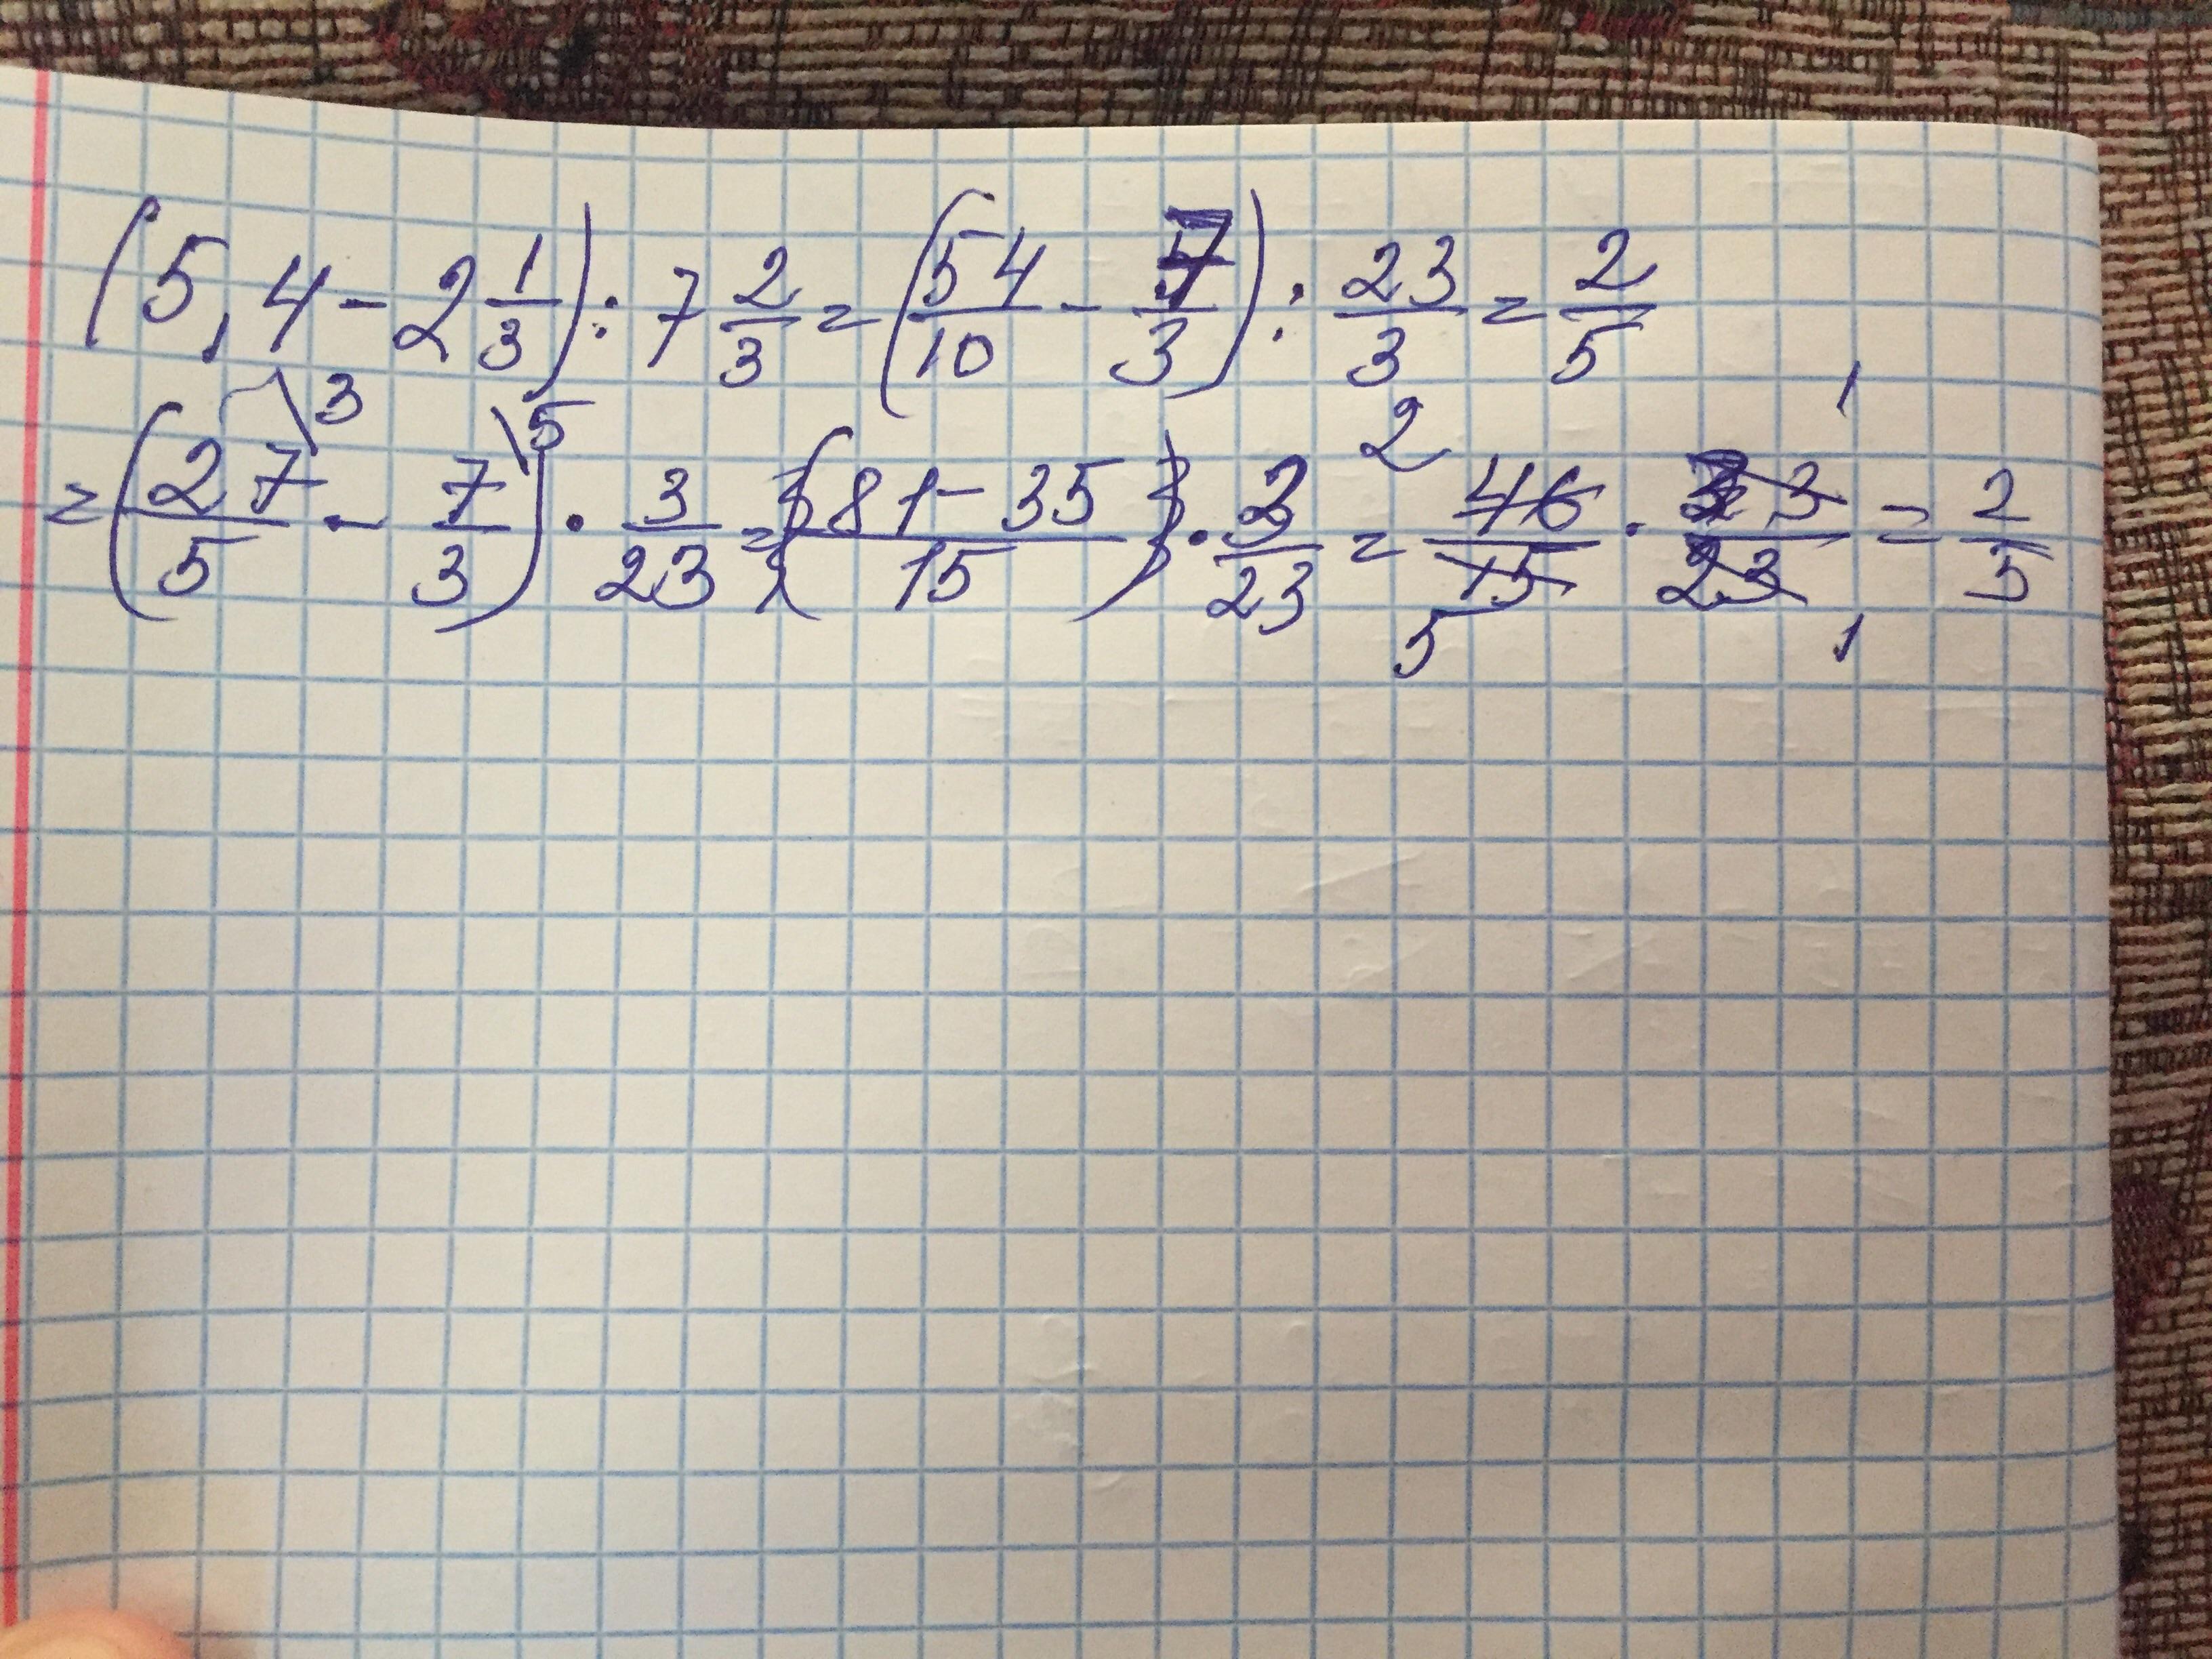 (5,4 - 2 1/3) : 7 2/3 = (54/10 - 7/3) : 23/3 = 2/5
= (27/5 \3 - 7/3 \5) · 3/23 = (81 - 35 / 15) · 3/23 = 2 46/15 5 · 1 3/23 1 = 2/5